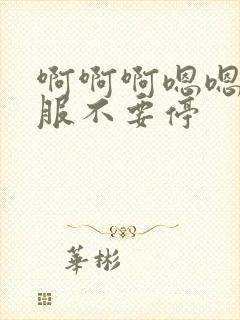 啊啊啊嗯嗯
服不要停
華彬